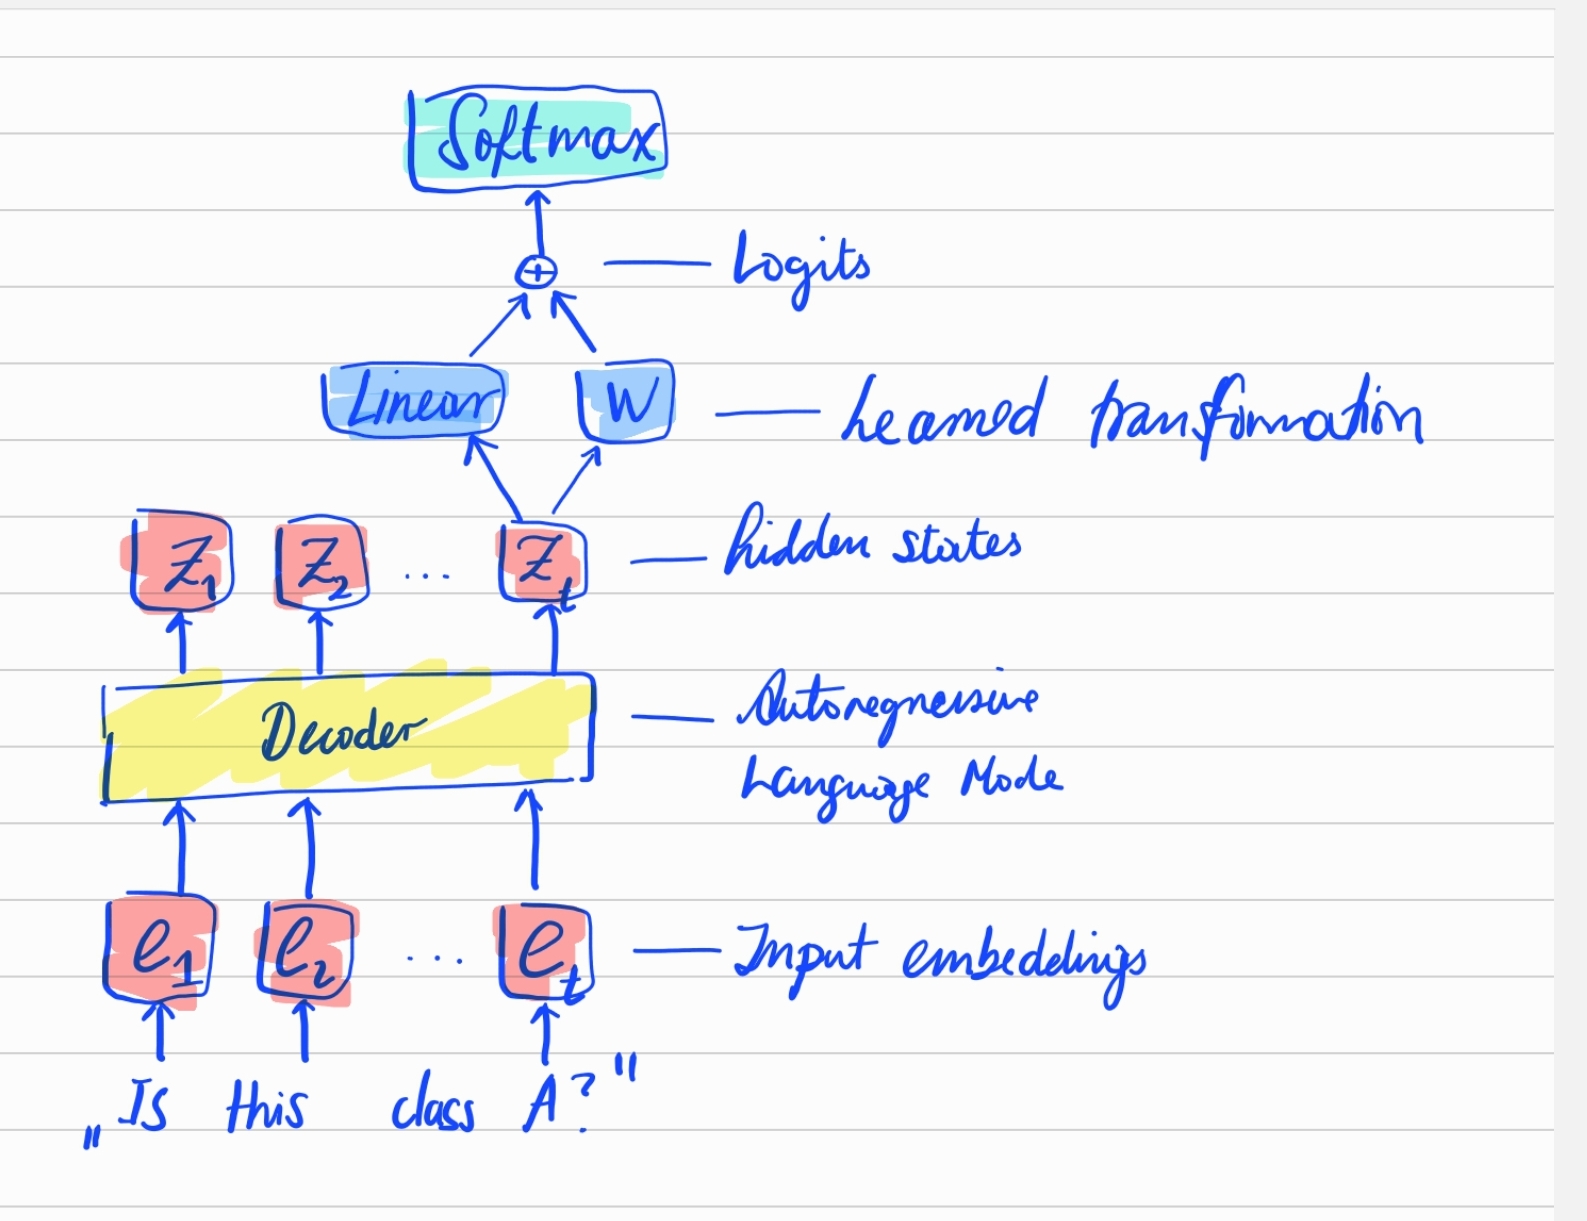 Softmax
Logits
Linear
W
Learned transformation
Z1
Z2
...
Zt
hidden states
Decoder
Autoregressive
Language Mode
e1
e2
...
et
Input embeddings
„Is this class A?"